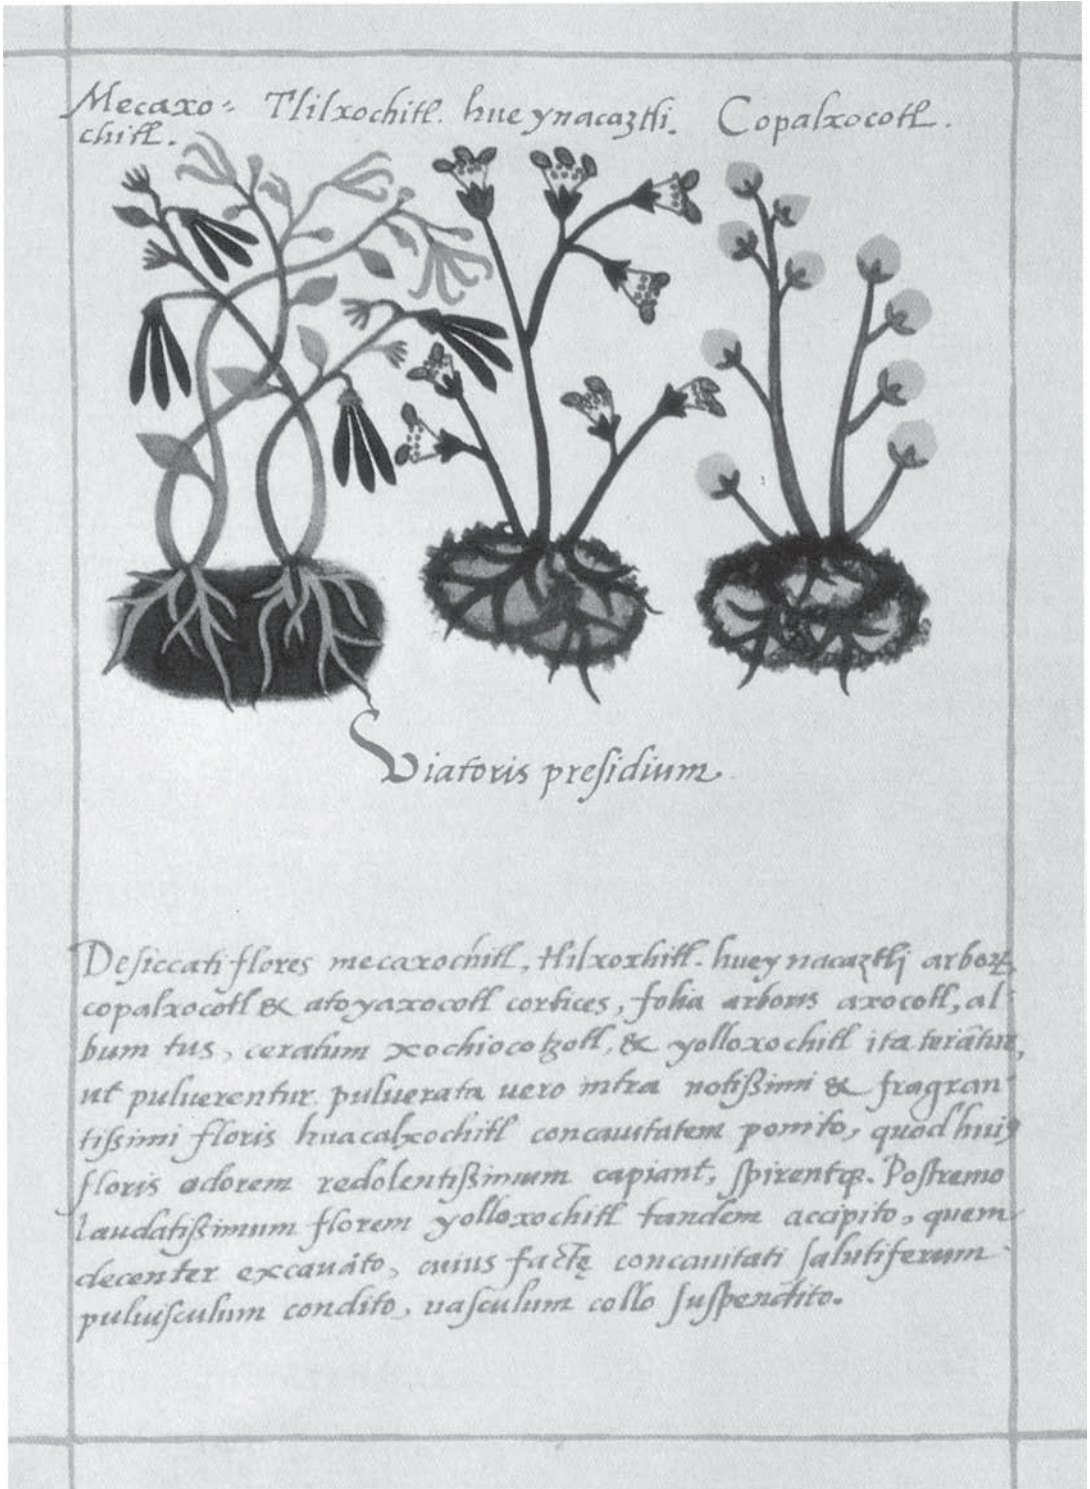 Mecaxo= Tlilxochitl. hueynacaztli. Copalxocotl.
chitl.
Viatoris presidium
Desiccati flores mecaxochitl, tlilxoxhitl. huey nacaztlj arborꝝ,
copalxocotl & atoyaxocotl cortices, folia arboris axocotl, al
bum tus, ceratum xochiocotzotl, & yolloxochitl ita terātur,
ut puluerentur. puluerata uero intra notißimi & fragran
tißimi floris huacalxochitl concauitatem ponito, quod huiꝰ
floris odorem redolentißimum capiant, spirentqꝫ. Postremo
laudatißimum florem yolloxochitl tandem accipito, quem
decenter excauáto, cuius factę concauitati salutiferum
puluisculum condito, uasculum collo suspendito.